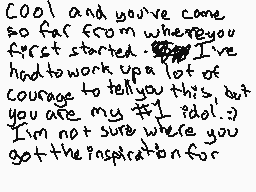 COOl and you've come
so far from where you
first started. I've
had to work up a lot of
courage to tell you this, but
you are my #1 idol. :)
I'm not sure where you
got the inspiration for